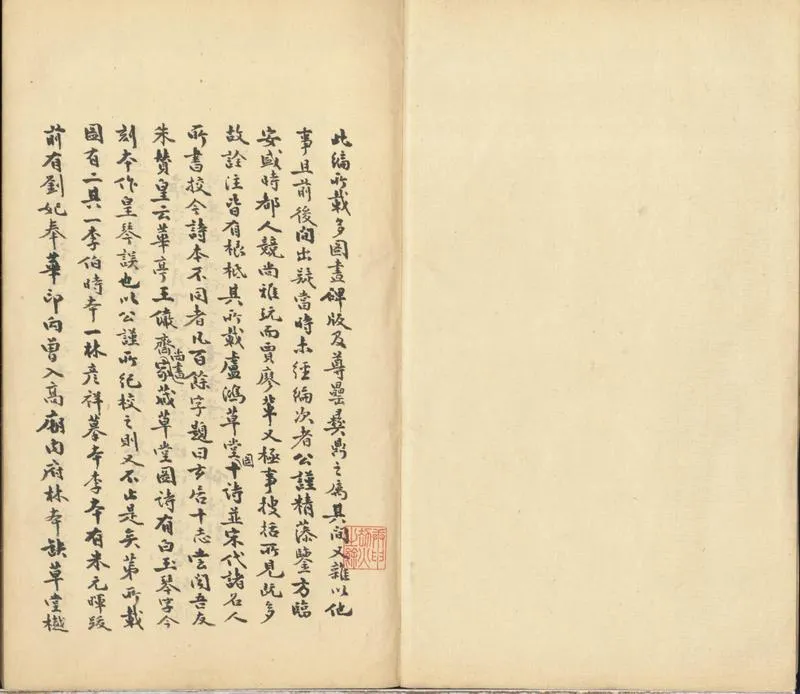 此編所載多圖畫碑版及尊罍彝鼎之屬其間又雜以他
事且前後間出疑當時未經編次者公謹精藻鑒方臨
安盛時都人競尚雅玩而賈廖輩又極事搜括所見既多
故詮注皆有根柢其所載盧鴻草堂圖十詩並宋代諸名人
所書校今詩本不同者凡百餘字題曰玄居十志嘗聞吾友
朱贊皇云華亭王儼齋尚書家藏草堂圖詩有白玉琴字今
刻本作皇琴誤也以公謹所紀校之則又不止是矣第所載
圖有二其一李伯時本一林彥祥摹本李本有米元暉跋
前有劉妃奉華印向曾入高廟內府林本缺草堂樾